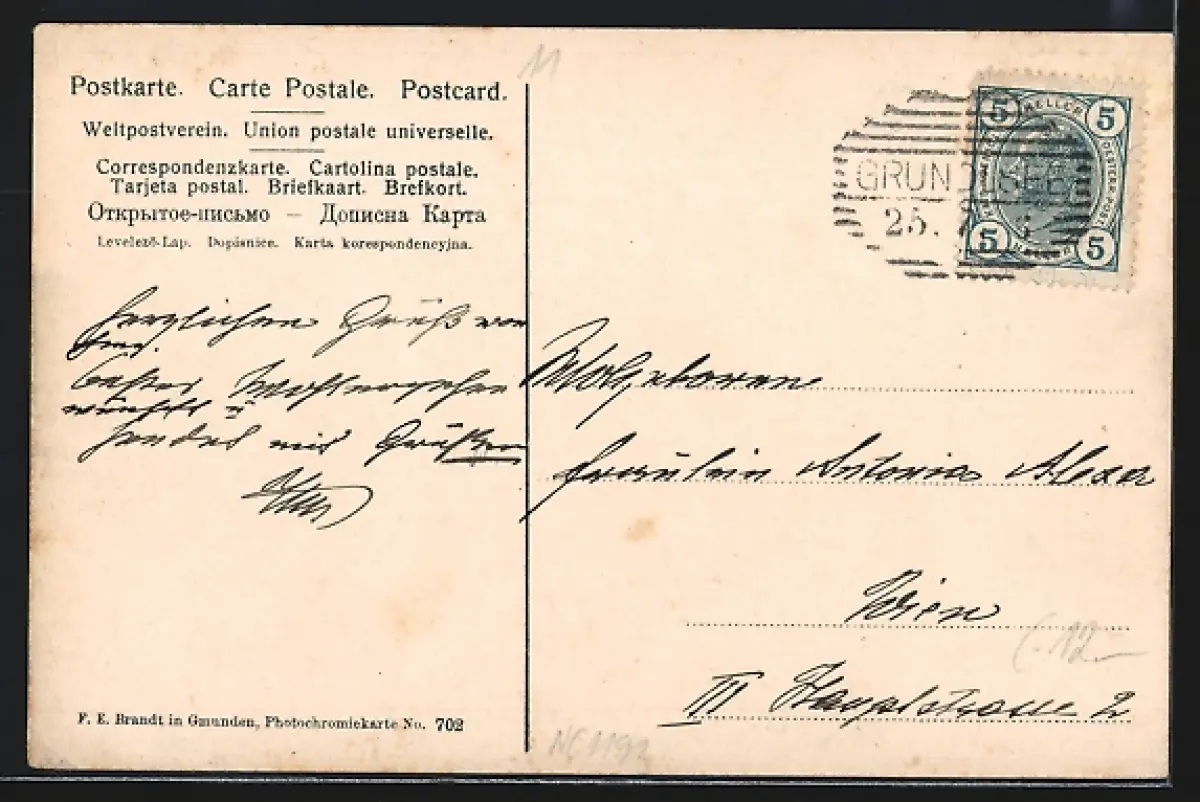 Postkarte. Carte Postale. Postcard.
Weltpostverein. Union postale universelle.
Correspondenzkarte. Cartolina postale.
Tarjeta postal. Briefkaart. Brefkort.
Открытое-письмо – Дописна Карта
Levelező-Lap. Dopisnice. Karta korespondencyjna.
11
5 HELLER 5
5 HELLER 5
GRUNDLSEE
25.
Herzlichen Grüß von
sendet mit Grüßen
Wohlgeboren
Fräulein Antonia Alexa
Wien
III Hauptstrasse 2
12
F. E. Brandt in Gmunden, Photochromiekarte No. 702